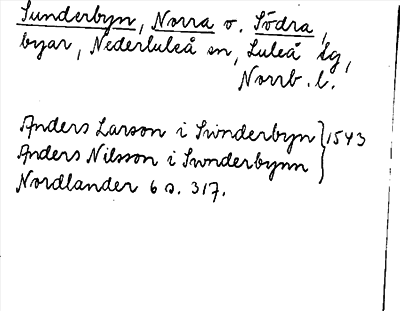 Sunderbyn, Norra o. Södra,
byar, Nederluleå sn, Luleå tg,
Norrb. l.
Anders Larson i Swnderbyn } 1543
Anders Nilsson i Swnderbynn
Nordlander 6 s. 317.